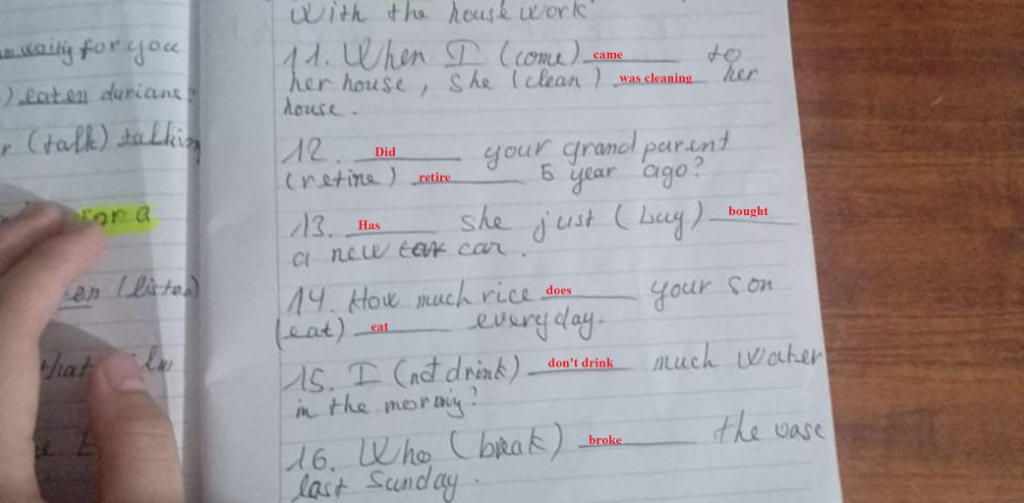 With the house work
11. When I (come) came to
her house, she (clean) was cleaning her
house.
12. Did your grand parent
(retire) retire 5 year ago?
13. Has she just (buy) bought
a new car car.
14. How much rice does your son
(eat) eat everyday.
15. I (not drink) don't drink much water
in the morning?
16. Who (break) broke the vase
last Sunday.
waiting for you
) eaten durians?
r (talk) talking
for a
en (listen)
that